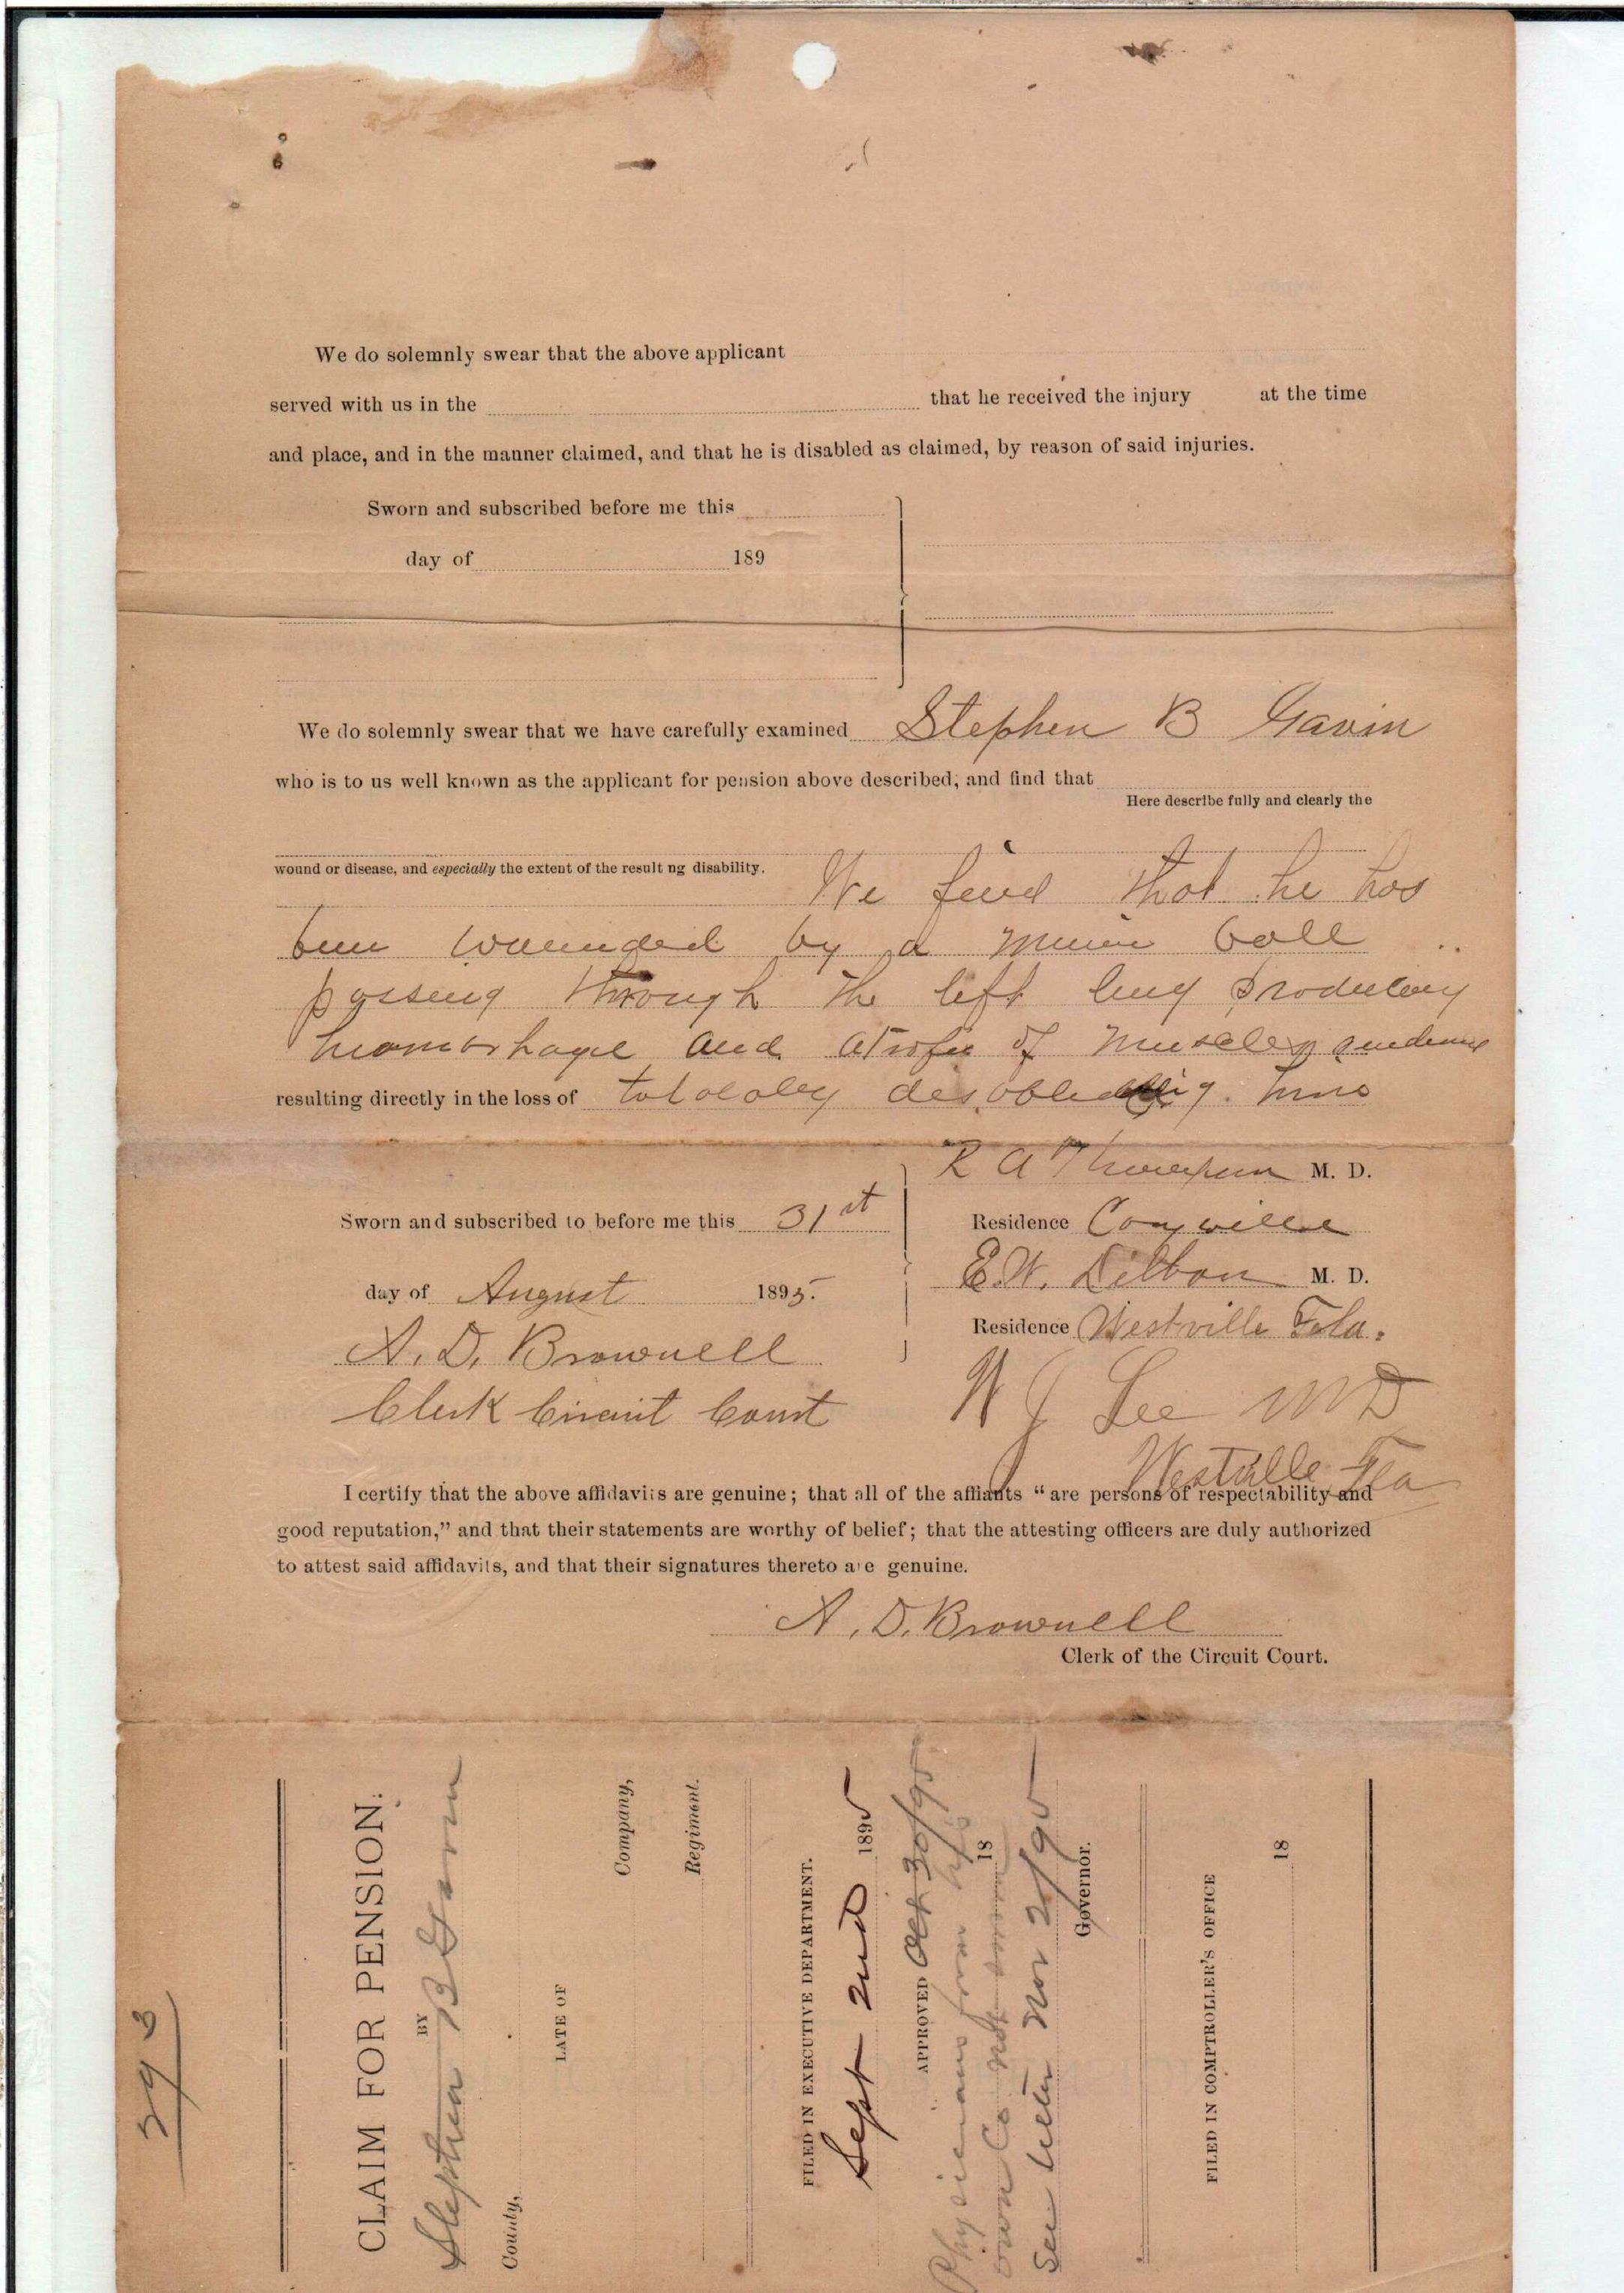 We do solemnly swear that the above applicant
served with us in the that he received the injury at the time
and place, and in the manner claimed, and that he is disabled as claimed, by reason of said injuries.
Sworn and subscribed before me this
day of 189
We do solemnly swear that we have carefully examined Stephen B Gavin
who is to us well known as the applicant for pension above described, and find that
Here describe fully and clearly the
wound or disease, and especially the extent of the result ng disability.
We find that he has
been wounded by a minie ball
passing through the left lung producing
hemorhage and atrofie of muscles
resulting directly in the loss of totolaley
R A Thompson M. D.
Sworn and subscribed to before me this 31st
Residence
day of August 1895.
E. W. M. D.
Residence Westville Fla.
A. D. Brownell
Clerk Circuit Court
W J Lee MD
Westville Fla
I certify that the above affidavits are genuine; that all of the affiants "are persons of respectability and
good reputation," and that their statements are worthy of belief; that the attesting officers are duly authorized
to attest said affidavits, and that their signatures thereto a e genuine.
A. D. Brownell
Clerk of the Circuit Court.
293
CLAIM FOR PENSION.
BY
Stephen B Gavin
County,
LATE OF
Company,
Regiment.
FILED IN EXECUTIVE DEPARTMENT.
Sept 2nd 1895
APPROVED Oct 30/95
Physicians from his
18
own Co not
See letter Nov 2/95
Governor.
FILED IN COMPTROLLER'S OFFICE
18